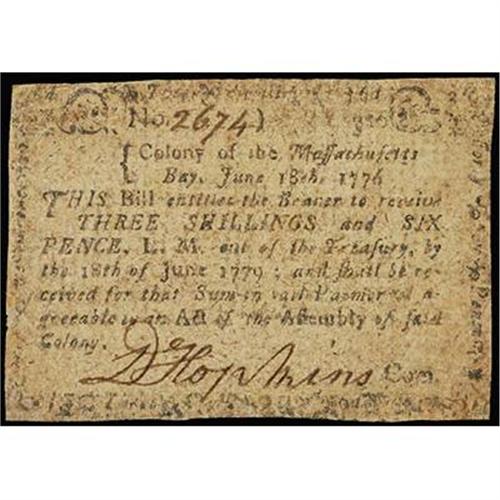 No. 2674)
{Colony of the Maſſachuſetts
Bay. June 18th. 1776
THIS Bill entitles the Bearer to receive
THREE SHILLINGS and SIX
PENCE, L. M. out of the Treaſury, by
the 18th of June 1779; and ſhall be re-
ceived for that Sum in all Payments a-
greeable to an Act of the Aſſembly of ſaid
Colony.
D Hopkins Com.